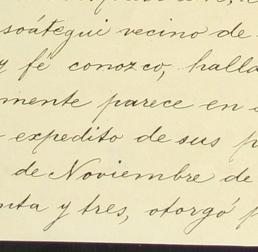 soátegui vecino de
y fé conozco, halla
mente parece en
expedito de sus
de Noviembre de
nta y tres, otorgó